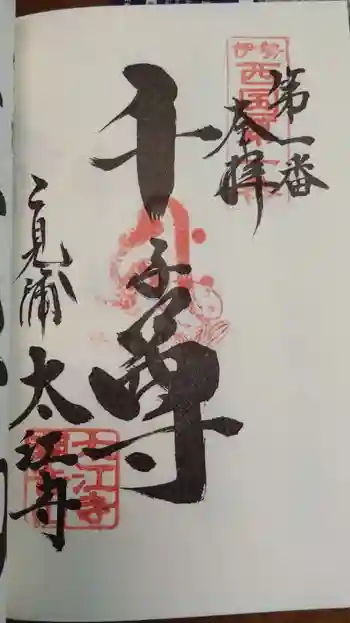 奉拝
第一番
伊勢
西国第一番
千手尊
二見浦
太江寺
太江寺